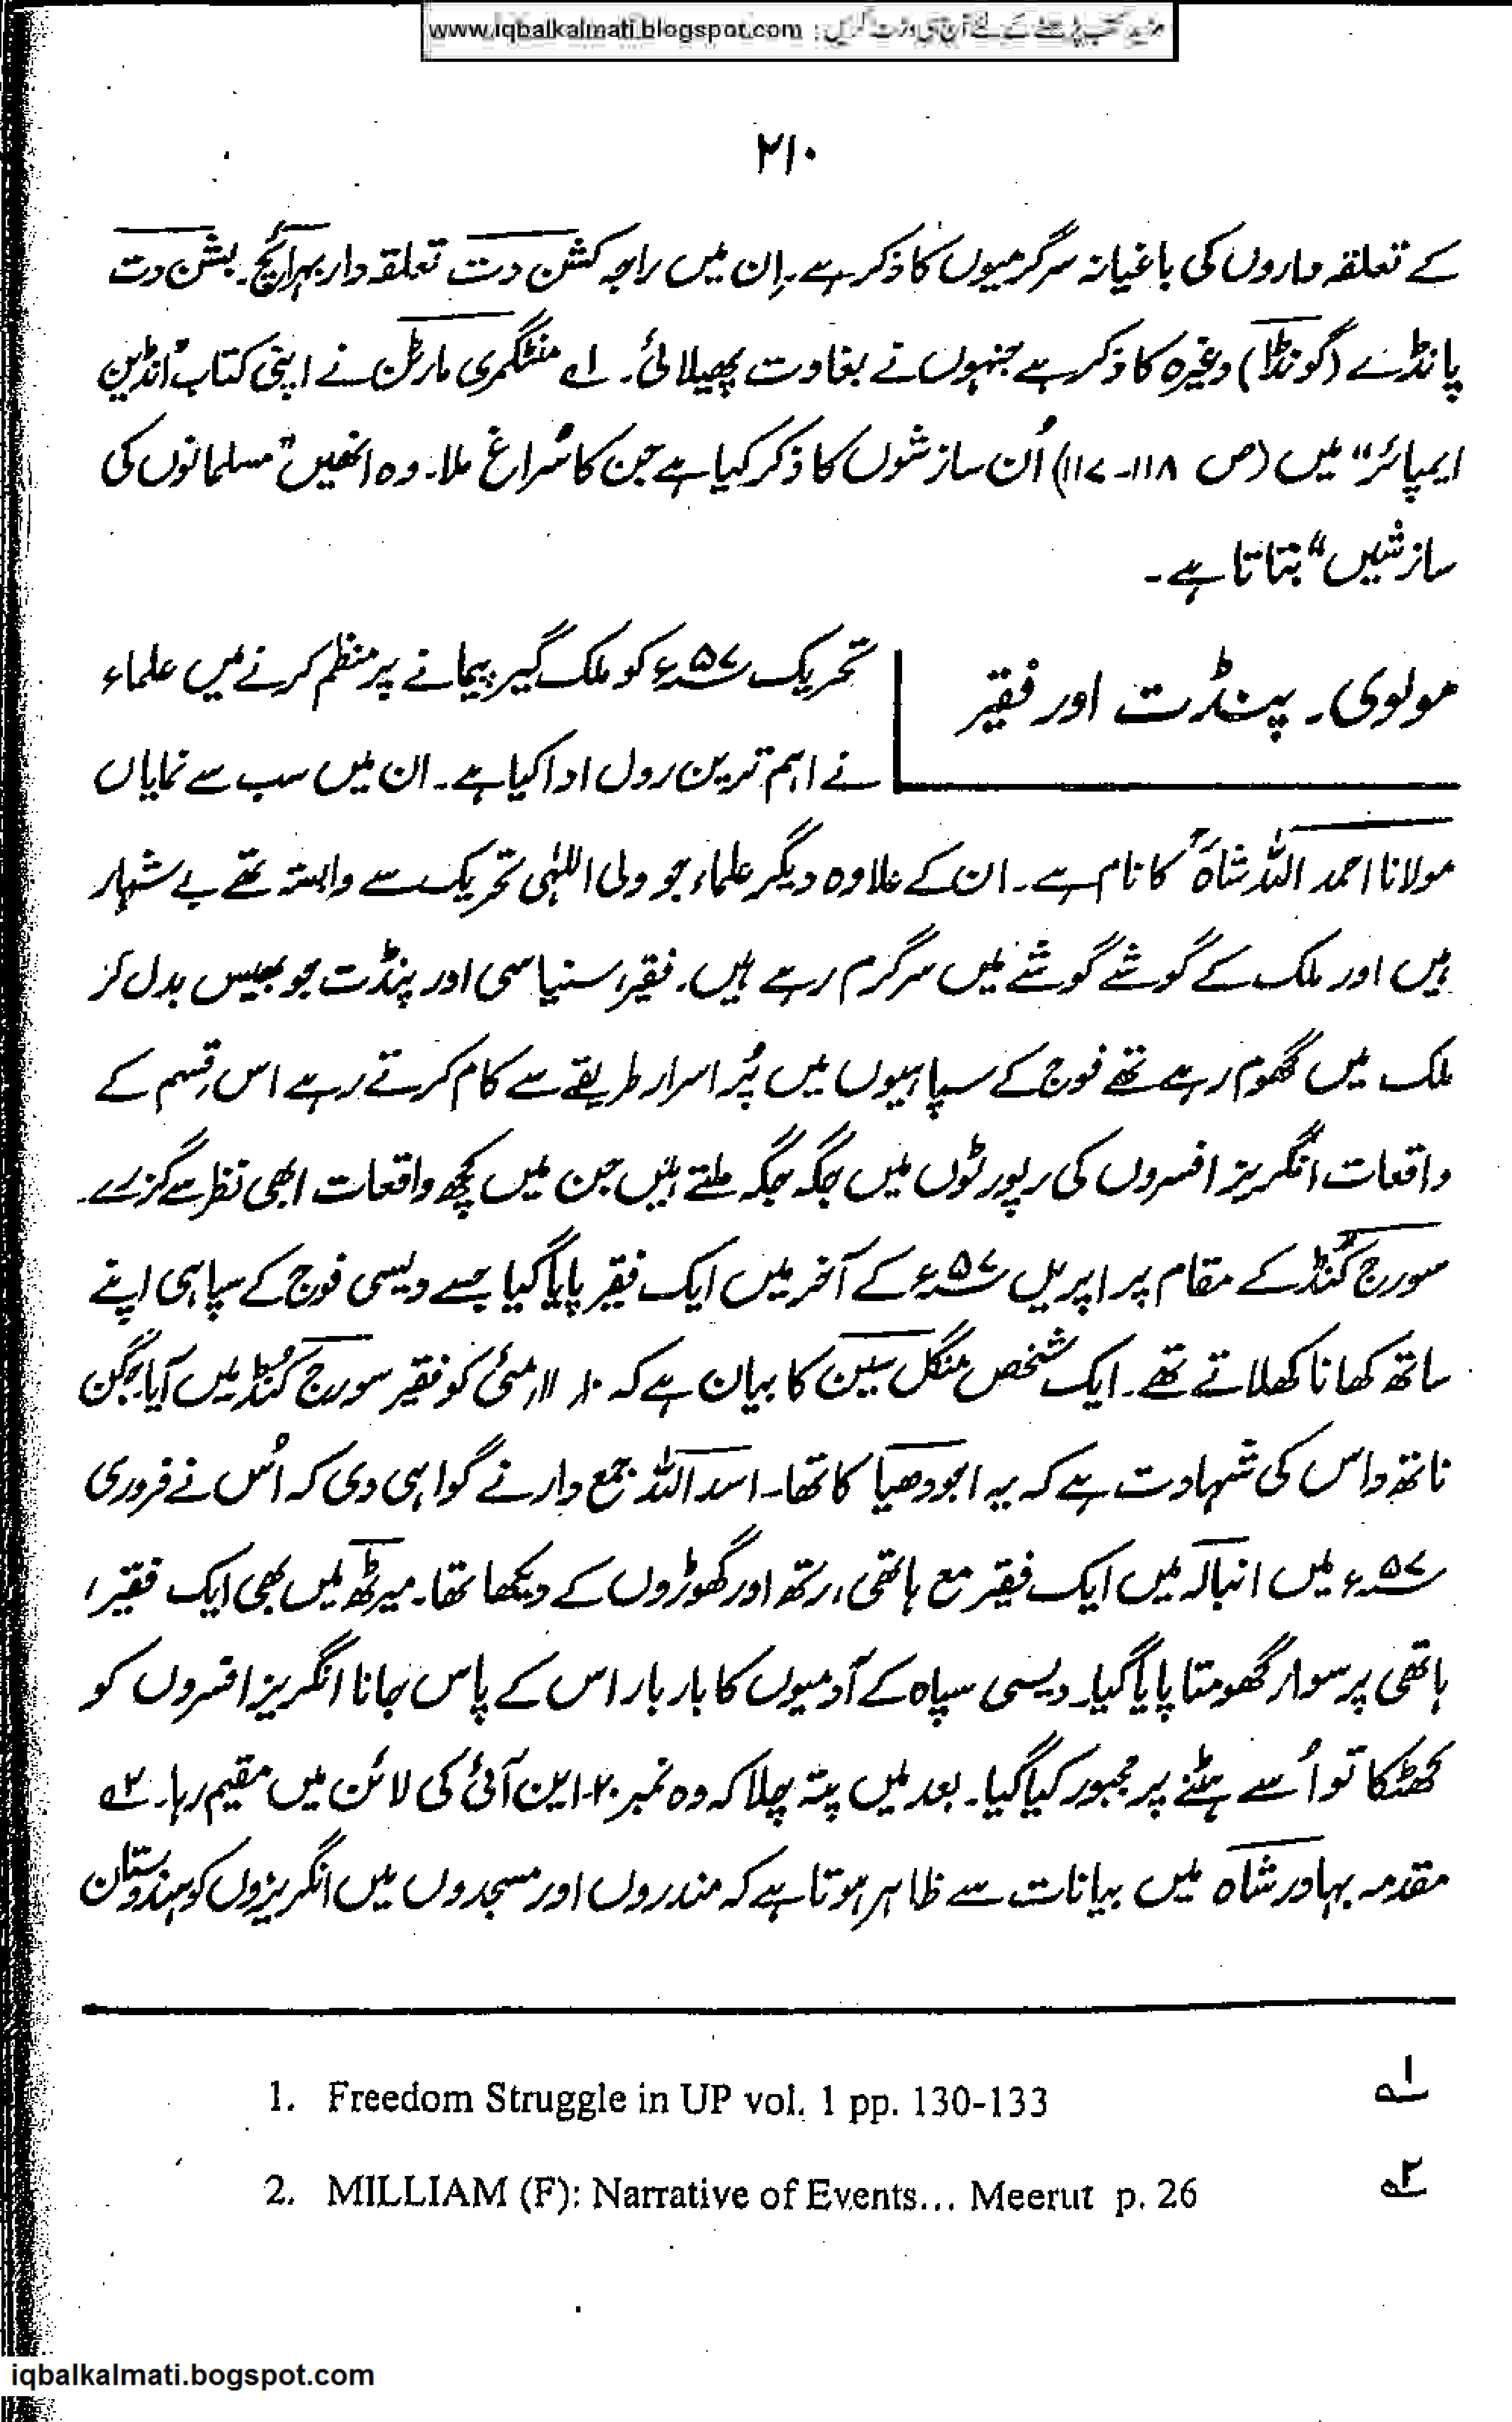 مزید کتب پڑھنے کے لئے آج ہی وزٹ کریں : www.iqbalkalmati.blogspot.com
۲۱۰
کے تعلقہ داروں کی باغیانہ سرگرمیوں کا ذکر ہے۔ اِن میں راجہ کشن دت تعلقہ دار بہرائچ۔ بشن دت
پانڈے (گونڈا) وغیرہ کا ذکر ہے جنہوں نے بغاوت پھیلائی۔ ؎۱ منٹگمری مارٹن نے اپنی کتاب "انڈین
ایمپائر" میں (ص ۱۱۸-۱۱۷) اُن سازشوں کا ذکر کیا ہے جن کا سُراغ ملا۔ وہ انھیں "مسلمانوں کی
سازشیں" بتاتا ہے۔
مولوی۔ پنڈت اور فقیر
تحریک ۵۷ء کو ملک گیر پیمانے پر منظم کرنے میں علماء
نے اہم ترین رول ادا کیا ہے۔ ان میں سب سے نمایاں
مولانا احمد اللہ شاہؒ کا نام ہے۔ ان کے علاوہ دیگر علماء جو ولی اللہٰی تحریک سے وابستہ تھے بے شمار
ہیں اور ملک کے گوشے گوشے میں سرگرم رہے ہیں۔ فقیر، سنیاسی اور پنڈت جو بھیس بدل کر
ملک میں گھوم رہے تھے فوج کے سپاہیوں میں پُر اسرار طریقے سے کام کرتے رہے اس قسم کے
واقعات انگریز افسروں کی رپورٹوں میں جگہ جگہ ملتے ہیں جن میں کچھ واقعات ابھی نظر سے گزرے۔
سورج کُنڈ کے مقام پر اپریل ۵۷ء کے آخر میں ایک فقیر پایا گیا جسے دیسی فوج کے سپاہی اپنے
ساتھ کھانا کھلاتے تھے۔ ایک شخص منگل سین کا بیان ہے کہ ۱۰، ۱۱ مئی کو فقیر سورج کُنڈ میں آیا، جگن
ناتھ داس کی شہادت ہے کہ یہ اجودھیا کا تھا۔ اسد اللہ جمع دار نے گواہی دی کہ اُس نے فروری
۵۷ء میں انبالہ میں ایک فقیر مع ہاتھی، رتھ اور گھوڑوں کے دیکھا تھا۔ میرٹھ میں بھی ایک فقیر،
ہاتھی پر سوار گھومتا پایا گیا۔ دیسی سپاہ کے آدمیوں کا بار بار اس کے پاس جانا انگریز افسروں کو
کھٹکا تو اُسے ہٹنے پر مجبور کیا گیا۔ بعد میں پتہ چلا کہ وہ نمبر ۲۰۔ این آئی کی لائن میں مقیم رہا۔ ؎۲
مقدمہ بہادر شاہ میں بیانات سے ظاہر ہوتا ہے کہ مندروں اور مسجدوں میں انگریزوں کو ہندوستان
؎۱ 1. Freedom Struggle in UP vol. 1 pp. 130-133
؎۲ 2. MILLIAM (F): Narrative of Events... Meerut p. 26
iqbalkalmati.bogspot.com